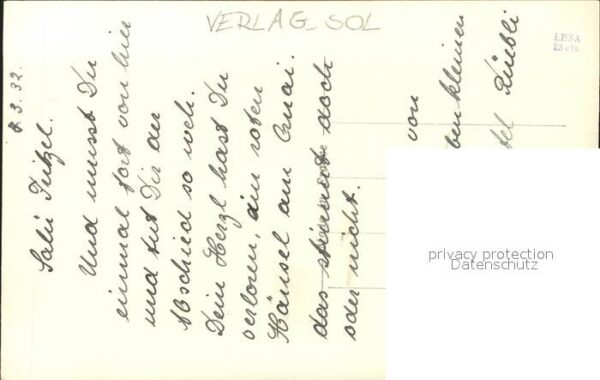 VERLAG SOL
LESA
25 cts.
8.3.32.
Salü
Und musst Du
einmal fort von hier
und tut Dir der
Abschied so weh.
Dein Herzl hast Du
verloren, am roten
Hänsel am
das stimmt doch
oder nicht.
von
kleinen
privacy protection
Datenschutz